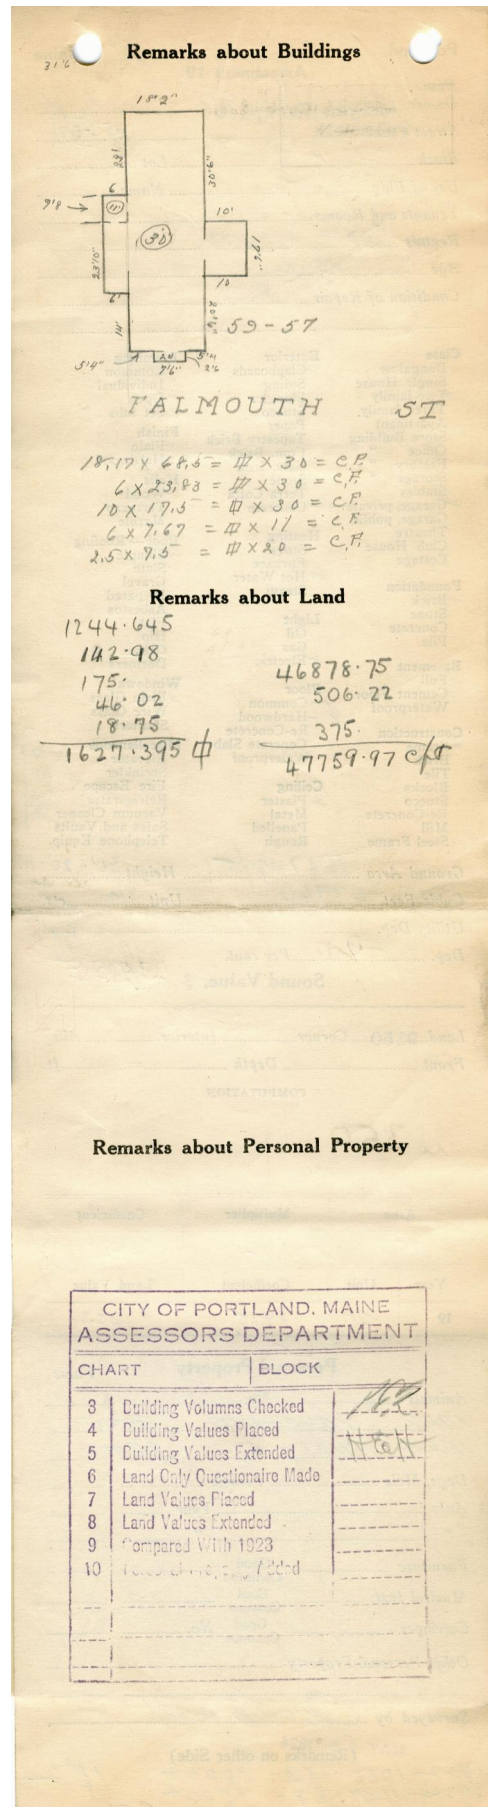 Remarks about Buildings
31'6
18'2"
22'
30'6"
6'
7'8 →
11'
10'
30'
17'6"
23'10"
10
6'
14'
20'6"
59-57
5'4"
A
20
5'4
7'6"
2'6
FALMOUTH ST
18.17 X 68.5 = 口 X 30 = C.F.
6 X 23.83 = 口 X 30 = C.F.
10 X 17.5 = 口 X 30 = C.F.
6 X 7.67 = 口 X 11 = C.F.
2.5 X 7.5 = 口 X 20 = C.F.
Remarks about Land
1244.645
142.98
175.
46.02
18.75
1627.395 口
46878.75
506.22
375.
47759.97 c/ft
Remarks about Personal Property
CITY OF PORTLAND, MAINE
ASSESSORS DEPARTMENT
CHART BLOCK
3 Building Volumns Checked
4 Building Values Placed
5 Building Values Extended
6 Land Only Questionaire Made
7 Land Values Placed
8 Land Values Extended
9 Compared With 1923
10 Personal Property Added